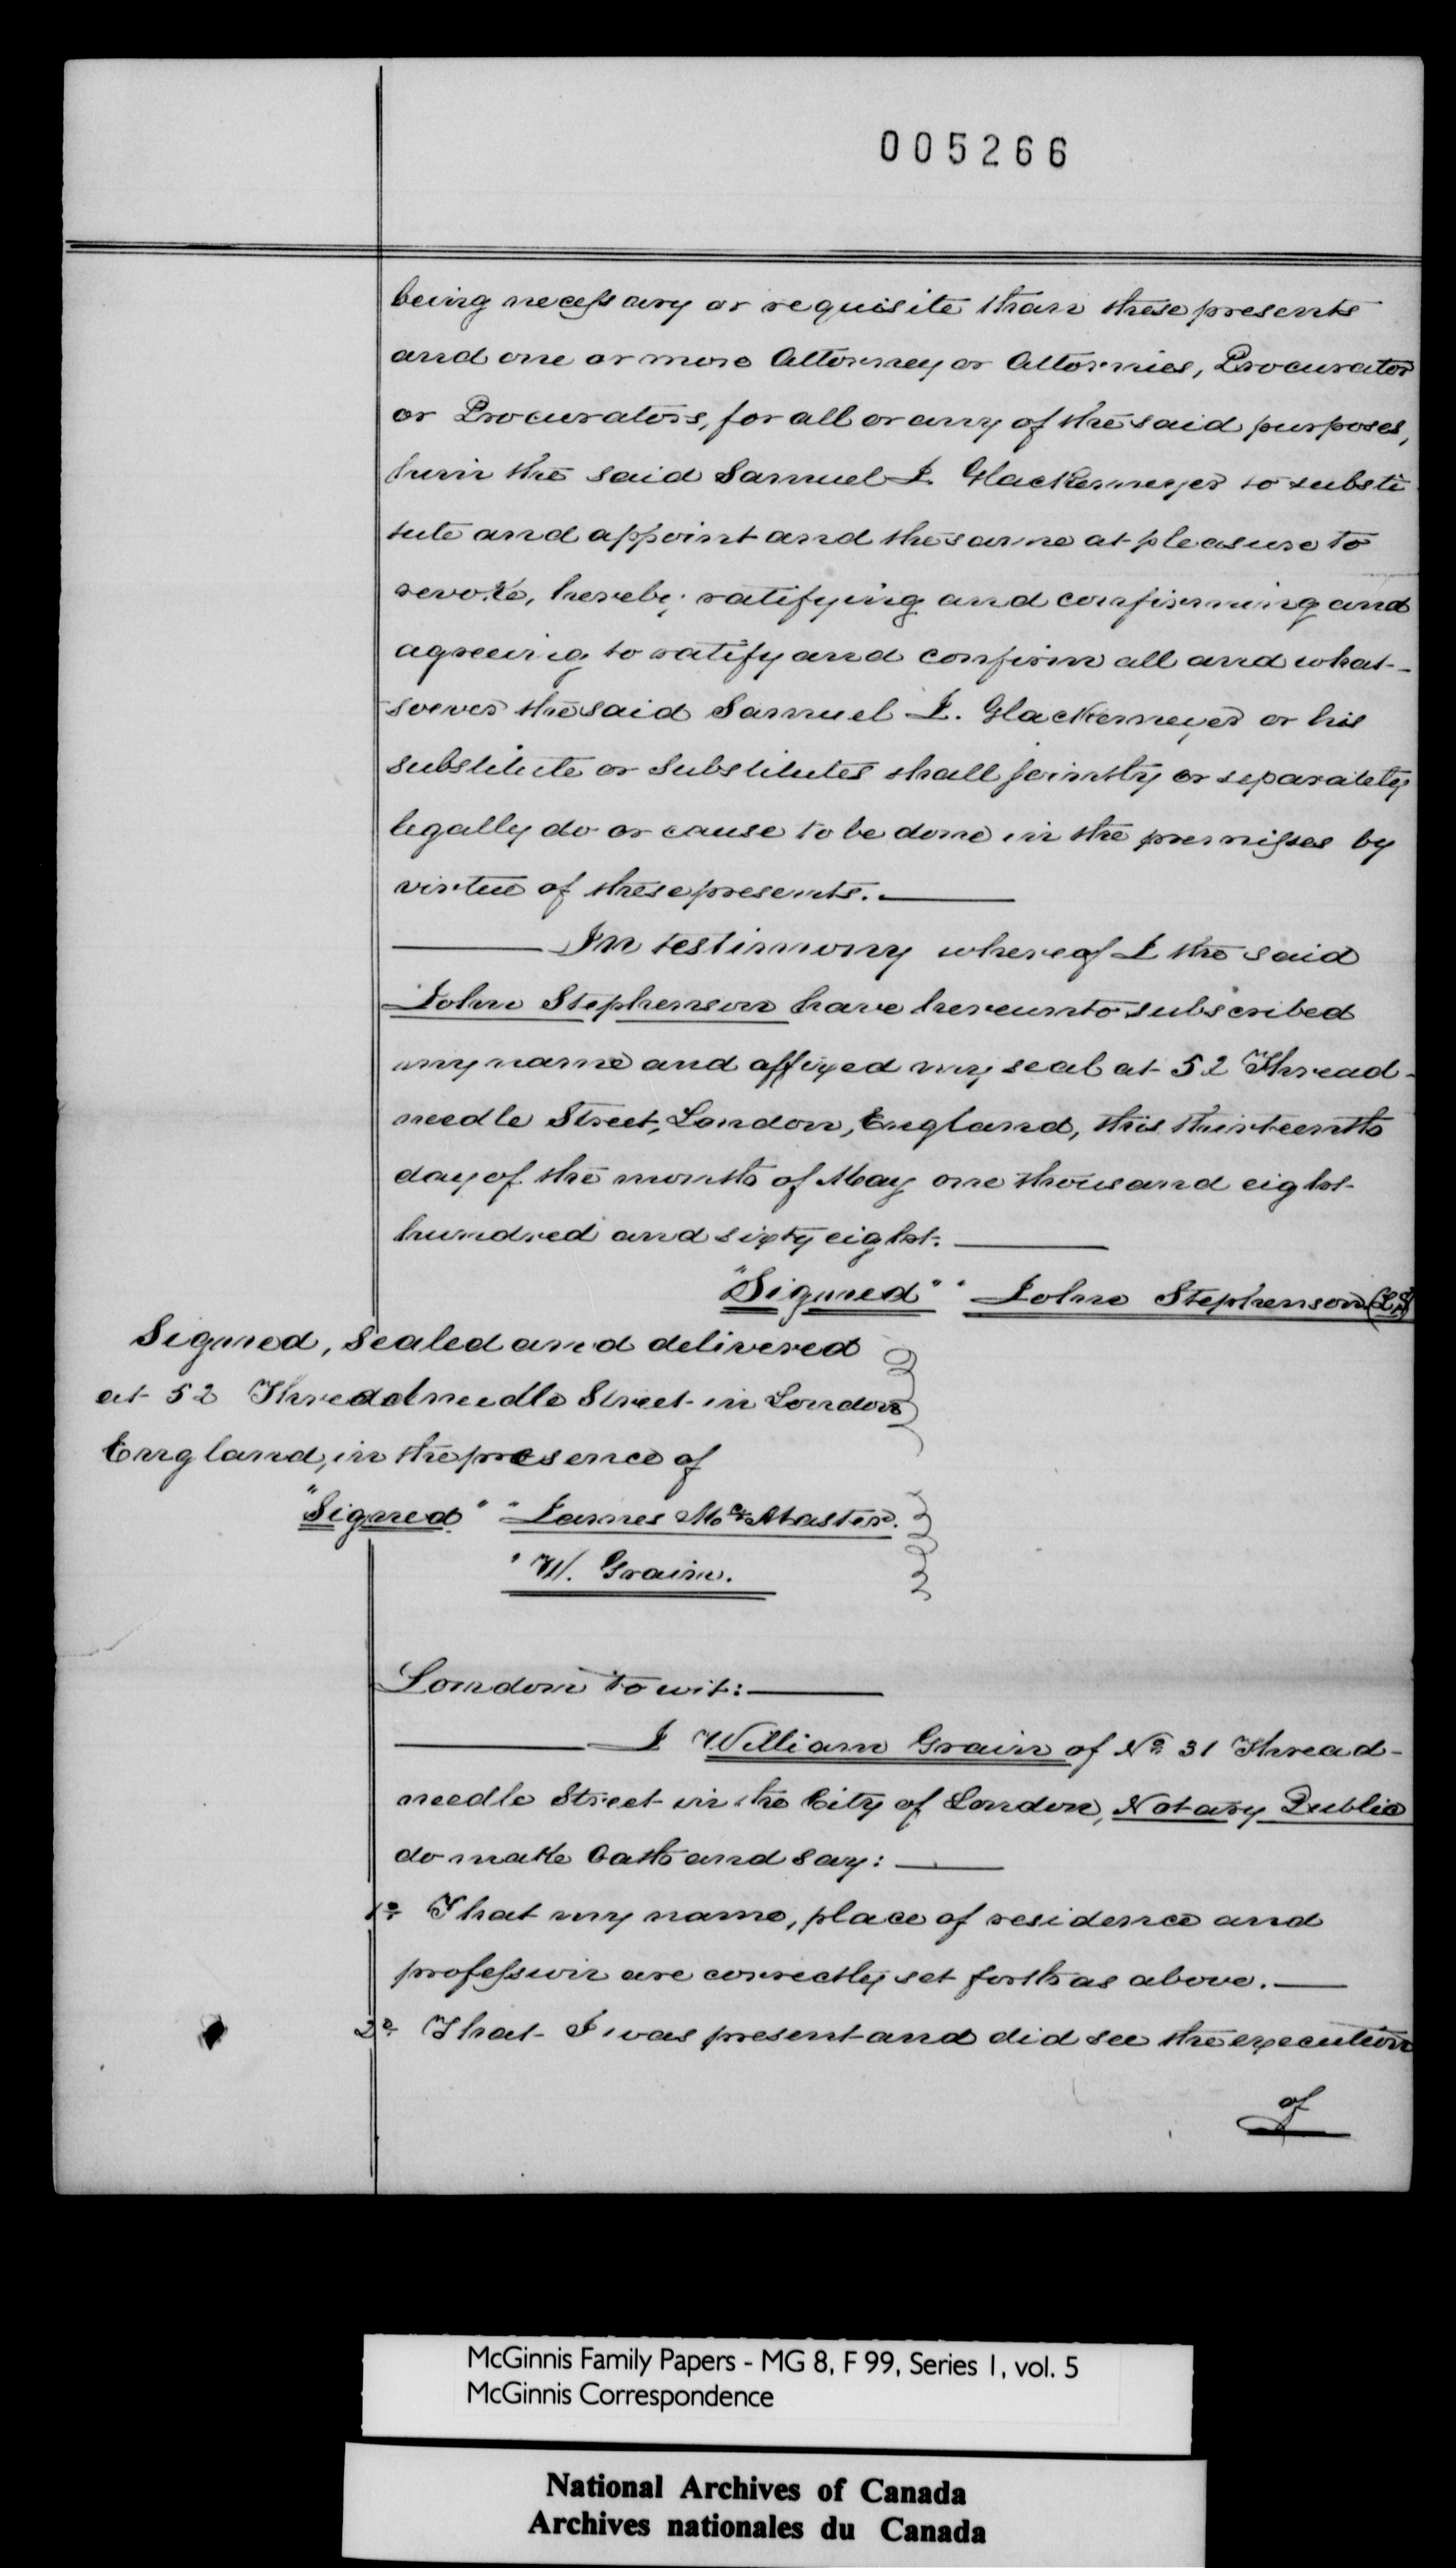 005266
being necessary or requisite than these presents
and one or more Attorney or Attornies, Procurator
or Procurators, for all or any of the said purposes,
him the said Samuel I. Glackemeyer to substi
tute and appoint and the same at pleasure to
revoke, hereby ratifying and confirming and
agreeing to ratify and confirm all and what-
soever the said Samuel I. Glackemeyer or his
substitute or substitutes shall jointly or separately
legally do or cause to be done in the premisses by
virtue of these presents.
In testimony whereof I the said
John Stephenson have hereunto subscribed
my name and affixed my seal at 52 Thread-
needle Street, London, England, this thirteenth
day of the month of May one thousand eight
hundred and sixty eight.
"Signed" "John Stephenson (LS)
Signed, sealed and delivered
at 52 Threadneedle Street in London
England, in the presence of
"Signed" "James McMaster.
"W. Grain.
London to wit:
I William Grain of No 31 Thread-
needle Street in the City of London, Notary Public
do make Oath and say:
1o That my name, place of residence and
profession are correctly set forth as above.
2o That I was present and did see the execution
of
McGinnis Family Papers - MG 8, F 99, Series 1, vol. 5
McGinnis Correspondence
National Archives of Canada
Archives nationales du Canada